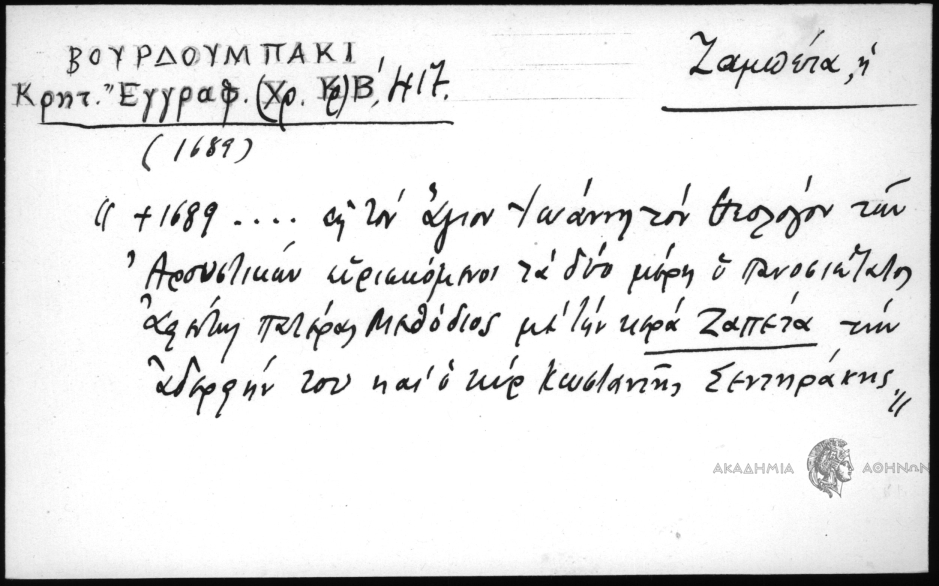 ΒΟΥΡΔΟΥΜΠΑΚΙ
Κρητ. Ἔγγραφ. (Χρ. Κρ) Β', 417.
Ζαμπέτα, ἡ
(1689)
" +1689 .... εἰς τὸν ἅγιον Ἰωάννη τὸν Θεολόγον τῶν
Ἀρσυστικῶν εὑρισκόμενοι τὰ δύο μέρη ὁ πανοσιώτατος
ἀφέντης πατέρας Μεθόδιος μὲ τὴν κερὰ Ζαπέτα τὴν
ἀδερφήν του καὶ ὁ κὺρ Κωσταντῆς Σεντηράκης"
ΑΚΑΔΗΜΙΑ ΑΘΗΝΩΝ